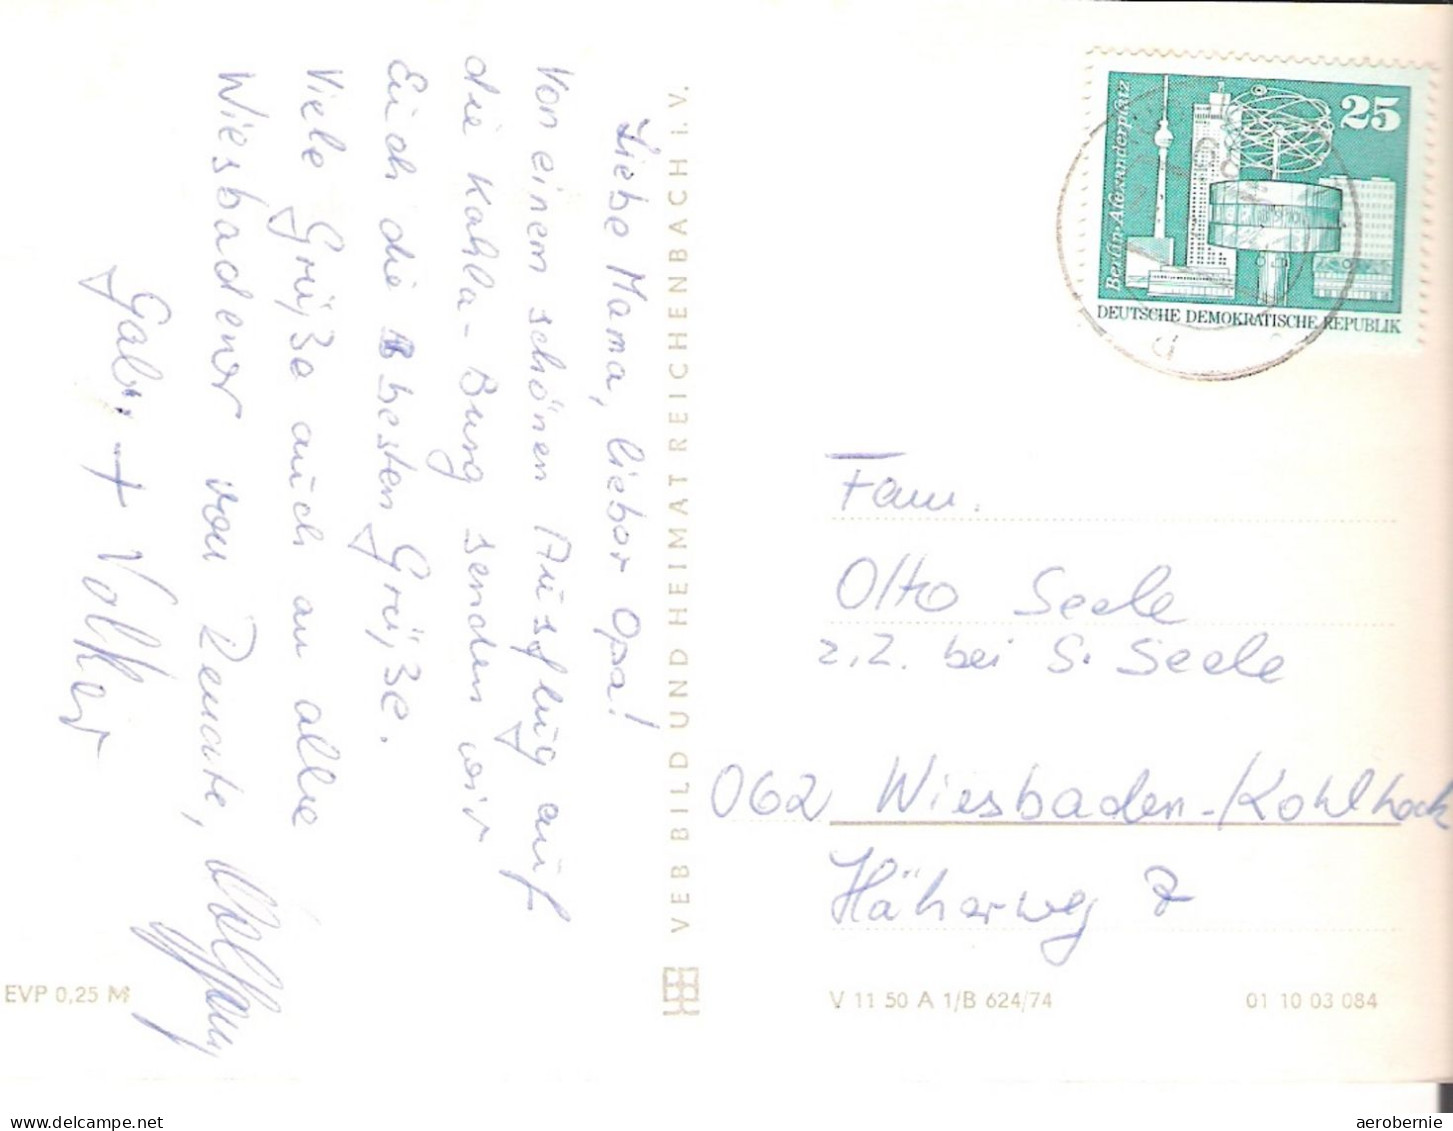 Liebe Mama, lieber Opa!
Von einem schönen Ausflug auf
die Kahla-Burg senden wir
Euch die besten Grüße.
Viele Grüße auch an alle
Wiesbadener von Renate, Wolfgang
Gabi + Volker
VEB BILD UND HEIMAT REICHENBACH I.V.
25
Berlin-Alexanderplatz
DEUTSCHE DEMOKRATISCHE REPUBLIK
Fam.
Otto Seele
z.Z. bei S. Seele
062 Wiesbaden-Kohlheck
Häherweg 7
EVP 0,25 M
V 11 50 A 1/B 624/74
01 10 03 084
www.delcampe.net
aerobernie